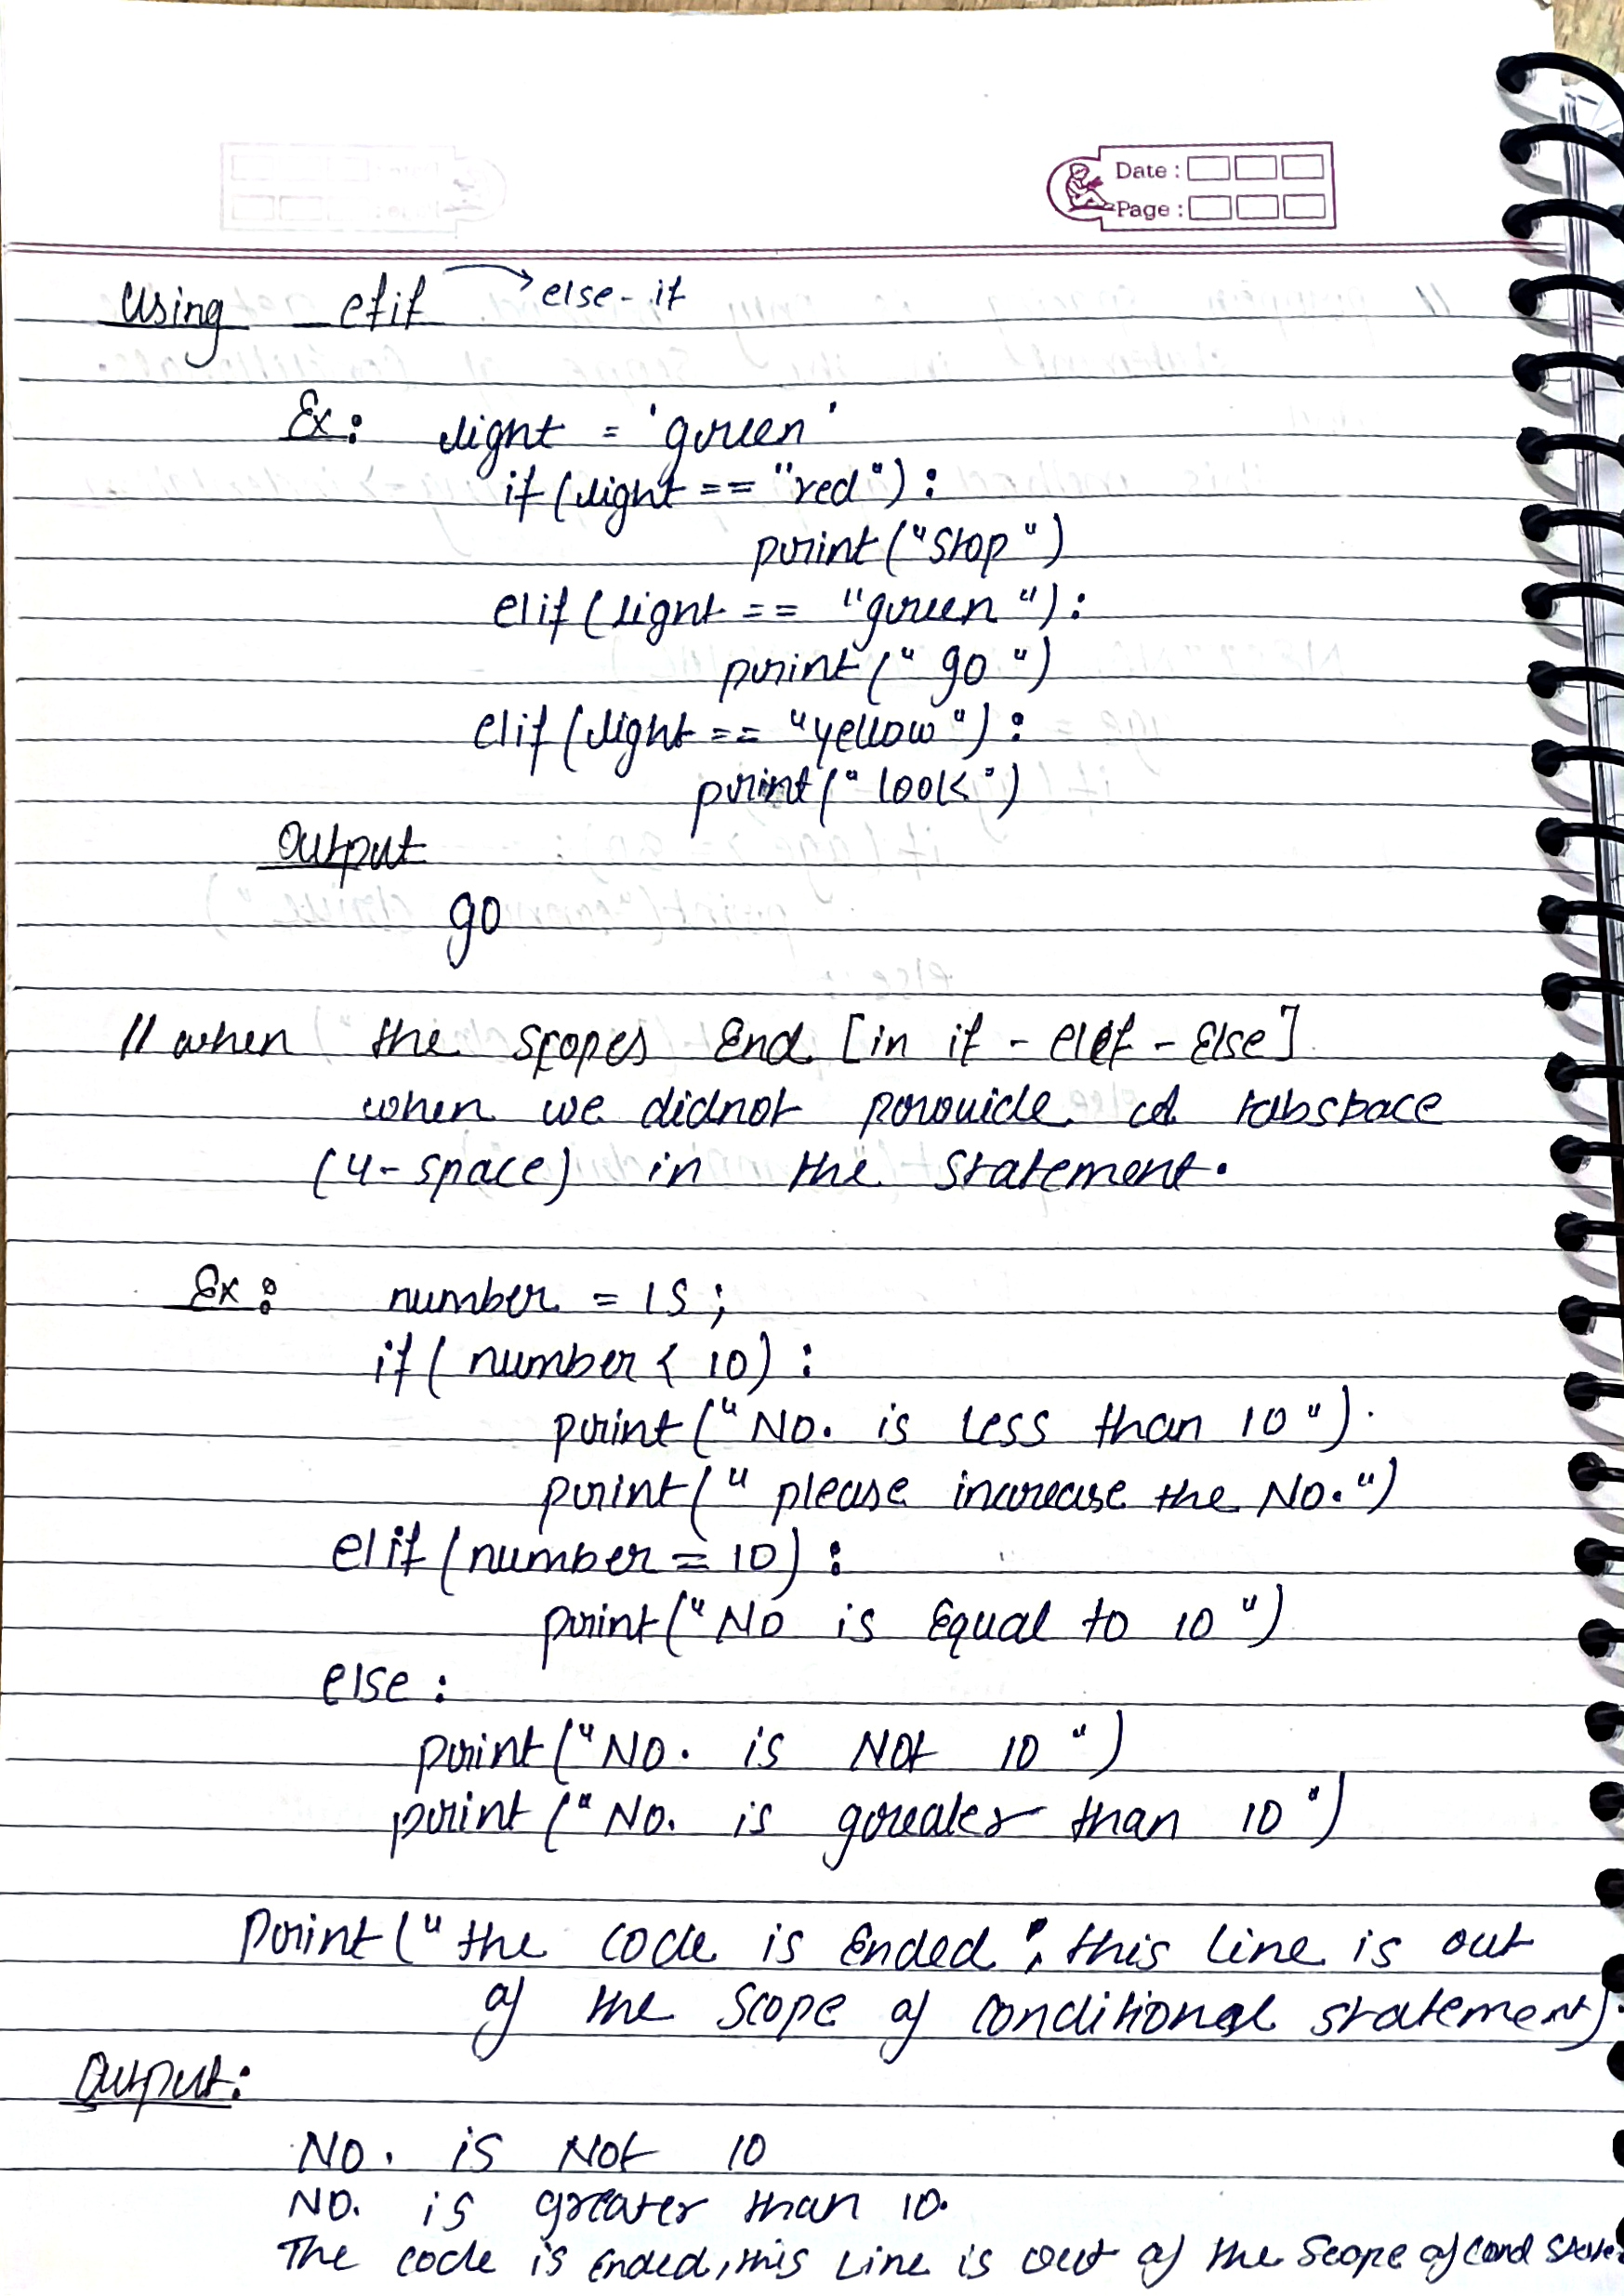 Date :
Page :
Using elif → else-if
Ex: light = 'green'
if (light == "red") :
print ("Stop")
elif (light == "green") :
print (" go ")
elif (light == "yellow") :
print (" look ")
Output
go
// when the scopes End [in if - elif - Else]
when we didnot provide a tabspace
(4- space) in the statement.
Ex : number = 15 ;
if ( number < 10) :
print ("No. is less than 10").
print (" please increase the No.")
elif (number = 10) :
print ("No is Equal to 10 ")
else :
print ("No. is Not 10 ")
print ("No. is greater than 10 ")
Print (" the code is Ended , this line is out
of the scope of conditional statement)
Output :
No. is Not 10
No. is greater than 10.
The code is Ended, this line is out of the scope of cond